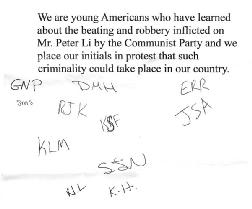 We are young Americans who have learned
about the beating and robbery inflicted on
Mr. Peter Li by the Communist Party and we
place our initials in protest that such
criminality could take place in our country.
GNP DMH ERR
RJK JSA
KLM
K.H.